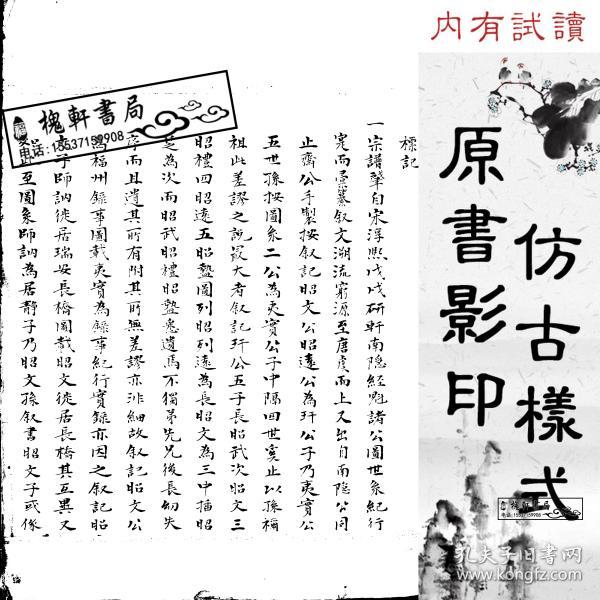 内有試讀
仿古樣式
原書影印
槐軒書局
电话:15537159908
標記
一宗譜肇自宋淳熙戊戌研軒南隱經魁諸公圖世系紀行
完而景纂叙文溯流窮源至唐虞而上又出自南隱公同
止齋公手製按叙記昭文公昭遠公為玕公子乃夷實公
五世孫按圖系二公為夷實公子中隔四世実止以孫禰
祖此差謬之說最大者叙記玕公五子長昭武次昭文三
昭禮四昭遠五昭盤圖列昭列遠為長昭文為三中插昭
為次而昭武昭禮昭盤竟遺焉不獨弟先兄後長幼失
序而且遺其所有附其所無差謬亦非細故叙記昭文公
為福州錄事圖載夷實為錄事紀行實錄亦因之叙記昭
子師訥徙居瑞安長橋圖載昭文徙居長橋其互異又
至圖系師訥為居靜子乃昭文孫叙書昭文子或係
槐軒書局
电话:15537159908
孔夫子旧书网
www.kongfz.com